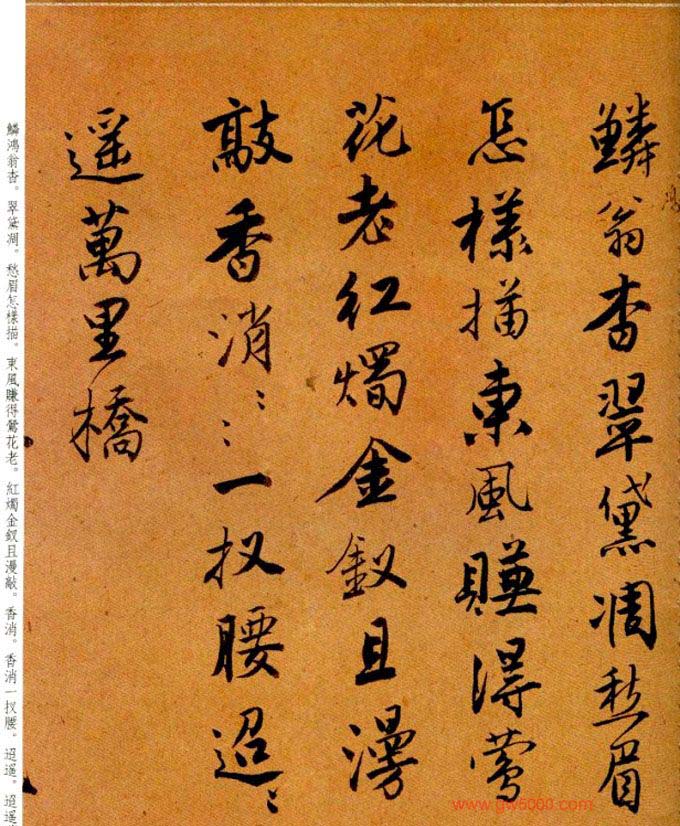 鱗翁杳翠黛凋愁眉
鴻
怎樣描東風賺得鶯
花老紅燭金釵且漫
敲香消〻〻一扠腰迢〻
遥萬里橋
鱗鴻翁杳。翠黛凋。愁眉怎樣描。東風賺得鶯花老。紅燭金釵且漫敲。香消。香消一扠腰。迢遥。迢遥
www.gw5000.com